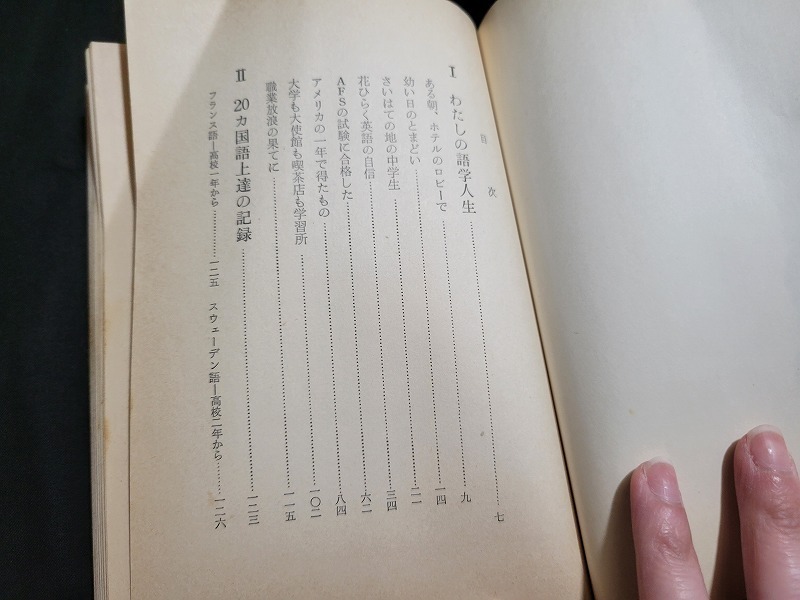 目次
Ⅰ わたしの語学人生……七
ある朝、ホテルのロビーで……九
幼い日のとまどい……一四
さいはての地の中学生……二一
花ひらく英語の自信……三四
AFSの試験に合格した……六二
アメリカの一年で得たもの……八四
大学も大使館も喫茶店も学習所……一〇二
職業放浪の果てに……一一五
Ⅱ 20カ国語上達の記録……一二三
フランス語―高校一年から……一二五 スウェーデン語―高校二年から……一二六